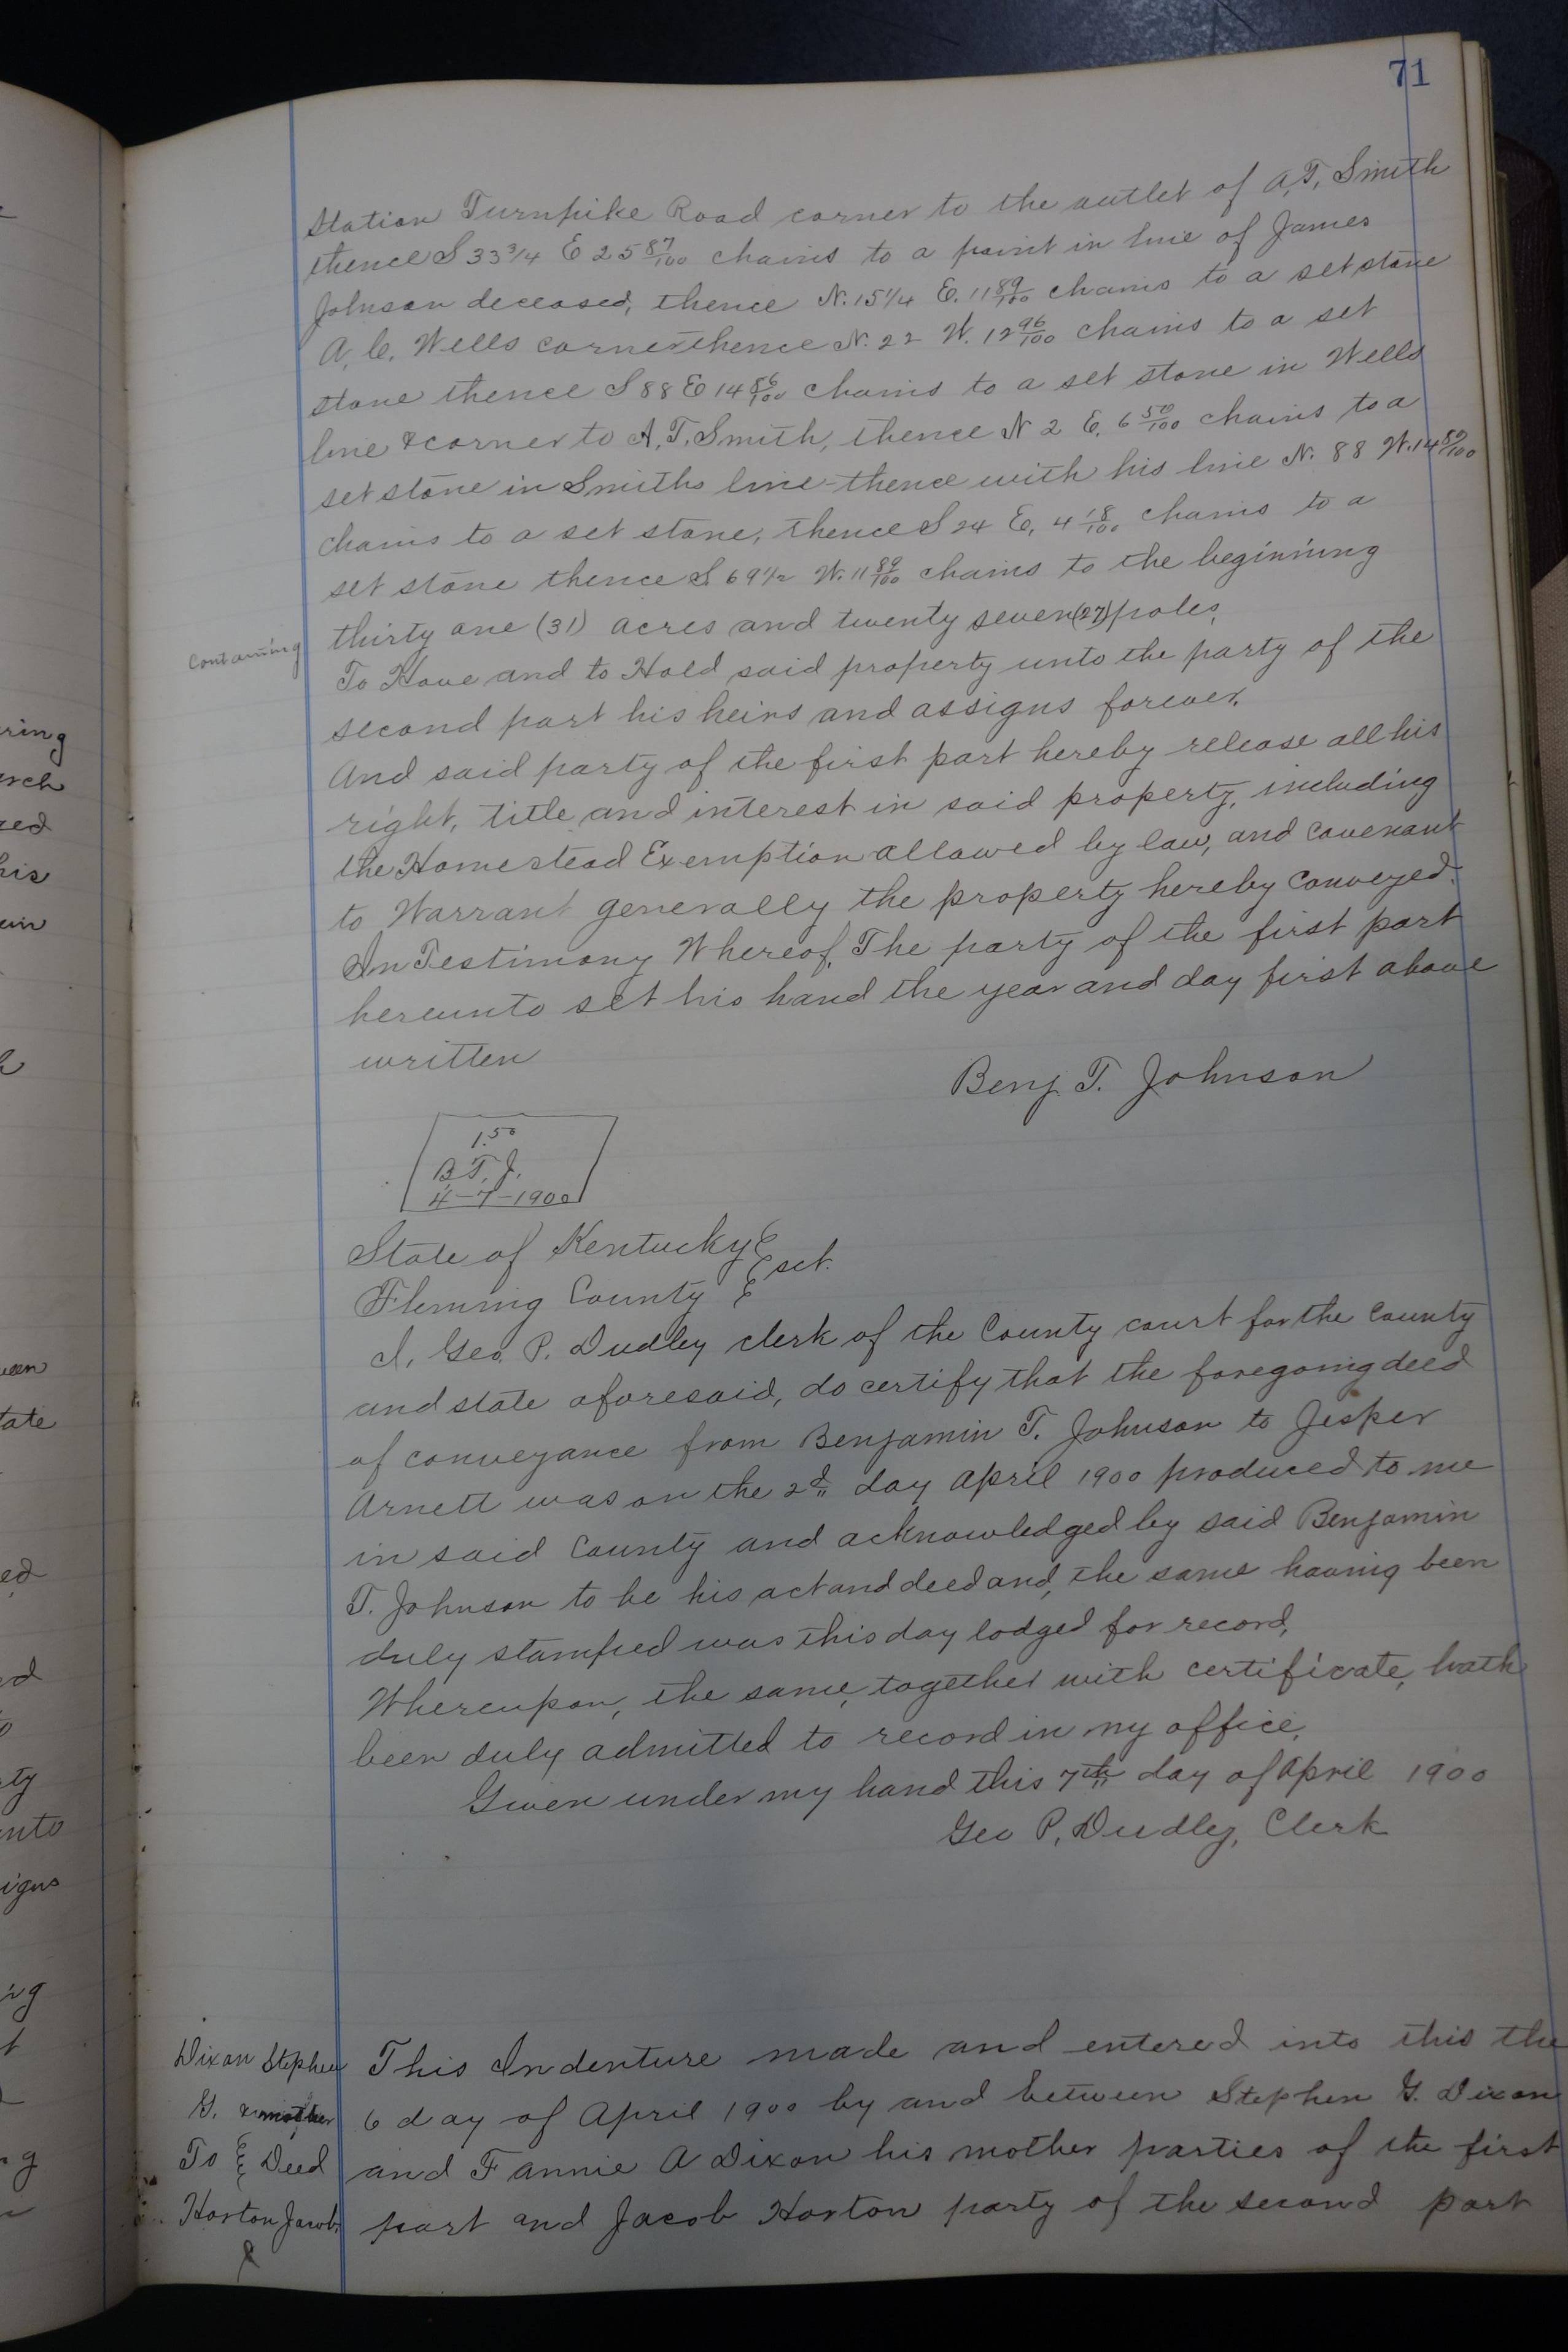 71
Station Turnpike Road corner to the outlet of A. T. Smith
thence S 33 3/4 E 25 87/100 chains to a point in line of James
Johnson deceased, thence N. 15 1/4 E. 11 89/100 chains to a set stone
A. C. Wells corner thence N. 22 W. 12 96/100 chains to a set
stone thence S 88 E 14 86/100 chains to a set stone in Wells
line & corner to A. T. Smith, thence N 2 E. 6 50/100 chains to a
set stone in Smiths line thence with his line N. 88 W. 14 80/100
chains to a set stone, thence S 24 E, 4 18/100 chains to a
set stone thence S 69 1/2 W. 11 89/100 chains to the beginning
Containing thirty one (31) acres and twenty seven (27) poles,
To Have and to Hold said property unto the party of the
second part his heirs and assigns forever.
And said party of the first part hereby release all his
right, title and interest in said property, including
the Homestead Exemption allowed by law, and covenant
to Warrant generally the property hereby conveyed.
In Testimony Whereof, The party of the first part
hereunto set his hand the year and day first above
written
Benj. T. Johnson
1.50
B. T. J.
4-7-1900
State of Kentucky
sct.
Fleming County
I, Geo. P. Dudley clerk of the County court for the County
and state aforesaid, do certify that the foregoing deed
of conveyance from Benjamin T. Johnson to Jesper
Arnett was on the 2d day April 1900 produced to me
in said County and acknowledged by said Benjamin
T. Johnson to be his act and deed and, the same having been
duly stamped was this day lodged for record,
Whereupon, the same, together with certificate, hath
been duly admitted to record in my office,
Given under my hand this 7th day of April 1900
Geo P. Dudley, Clerk
Dixon Stephen
G. & mother
To Deed
Horton Jacob
This Indenture made and entered into this the
6 day of April 1900 by and between Stephen G. Dixon
and Fannie A Dixon his mother parties of the first
part and Jacob Horton party of the second part